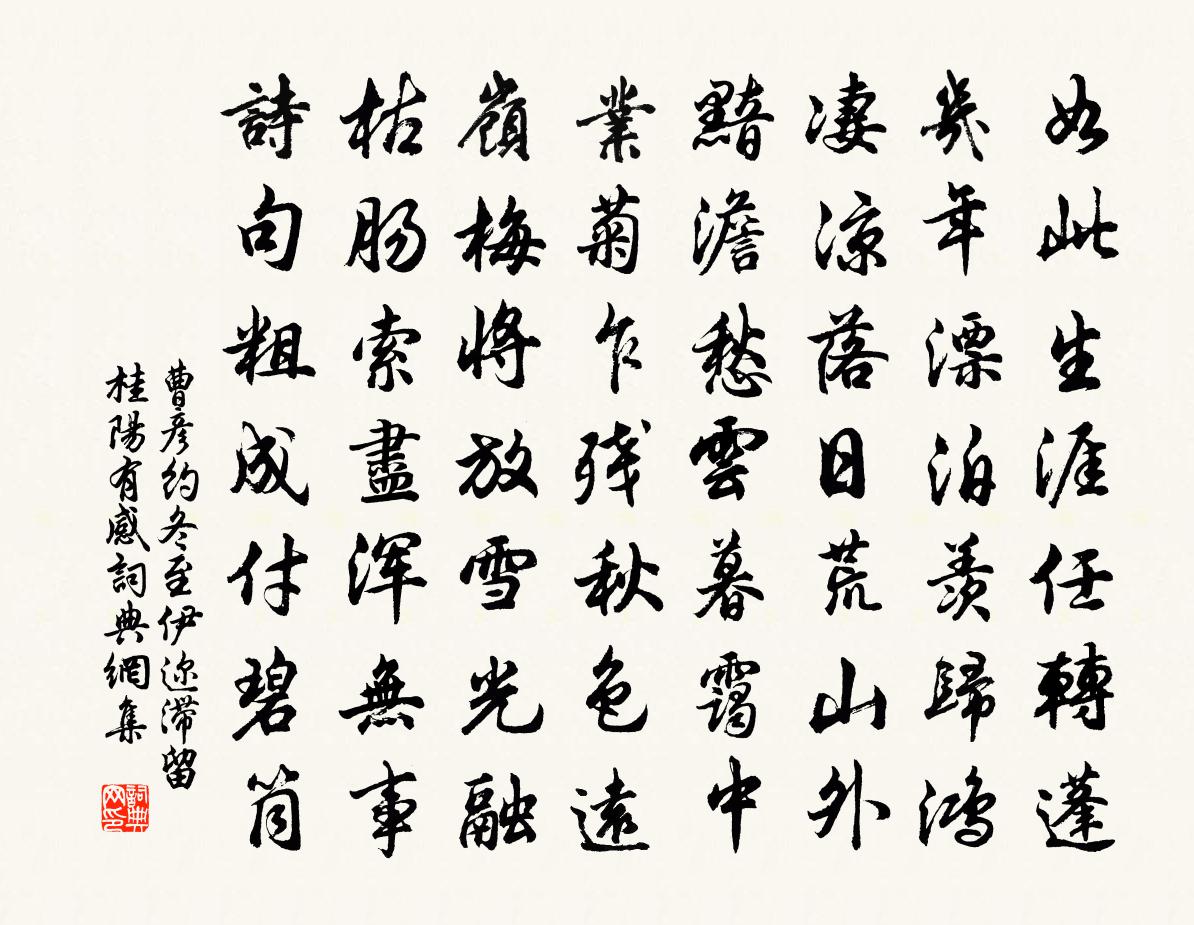 如此生涯任轉蓬
幾年漂泊羨歸鴻
凄涼落日荒山外
黯澹愁雲暮靄中
業菊乍殘秋色遠
嶺梅將放雪光融
枯腸索盡渾無事
詩句粗成付碧筒
曹彦約冬至伊邇滯留
桂陽有感詞典網集
詞典网印